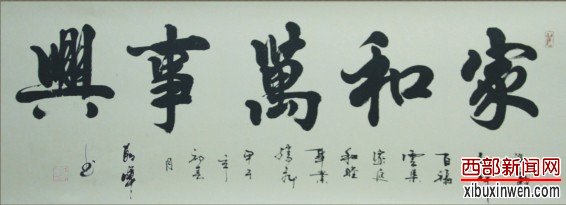 家和萬事興
百福
雲集
家庭
和睦
事業
騰飛
甲午
初春
月
西部新闻网
xibuxinwen.com